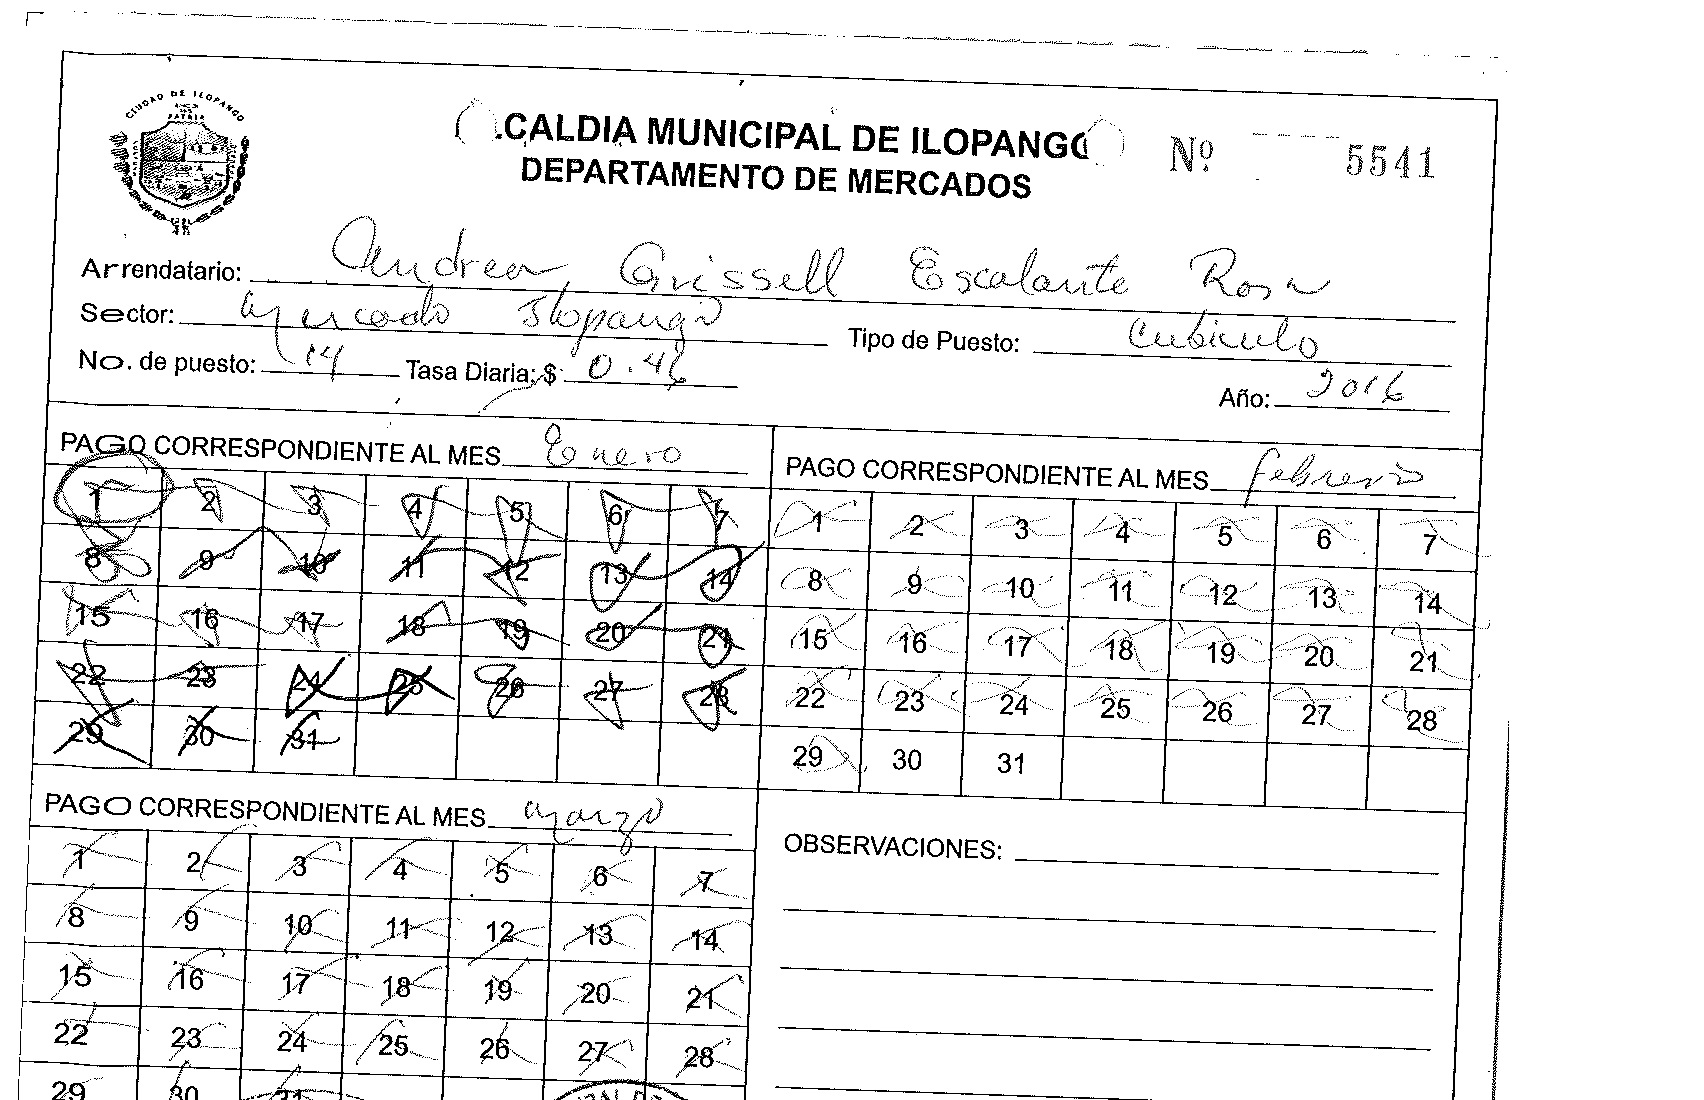 CIUDAD DE ILOPANGO
PATRIA
.CALDIA MUNICIPAL DE ILOPANGO
DEPARTAMENTO DE MERCADOS
Nº 5541
Arrendatario: Andrea Grissell Escalante Rosa
Sector: Mercado Ilopango
Tipo de Puesto: Cubiculo
No. de puesto: 14 Tasa Diaria: $ 0.46
Año: 2016
PAGO CORRESPONDIENTE AL MES Enero
1 2 3 4 5 6 7
8 9 10 11 12 13 14
15 16 17 18 19 20 21
22 23 24 25 26 27 28
29 30 31
PAGO CORRESPONDIENTE AL MES febrero
1 2 3 4 5 6 7
8 9 10 11 12 13 14
15 16 17 18 19 20 21
22 23 24 25 26 27 28
29 30 31
PAGO CORRESPONDIENTE AL MES marzo
1 2 3 4 5 6 7
8 9 10 11 12 13 14
15 16 17 18 19 20 21
22 23 24 25 26 27 28
29 30 31
OBSERVACIONES: